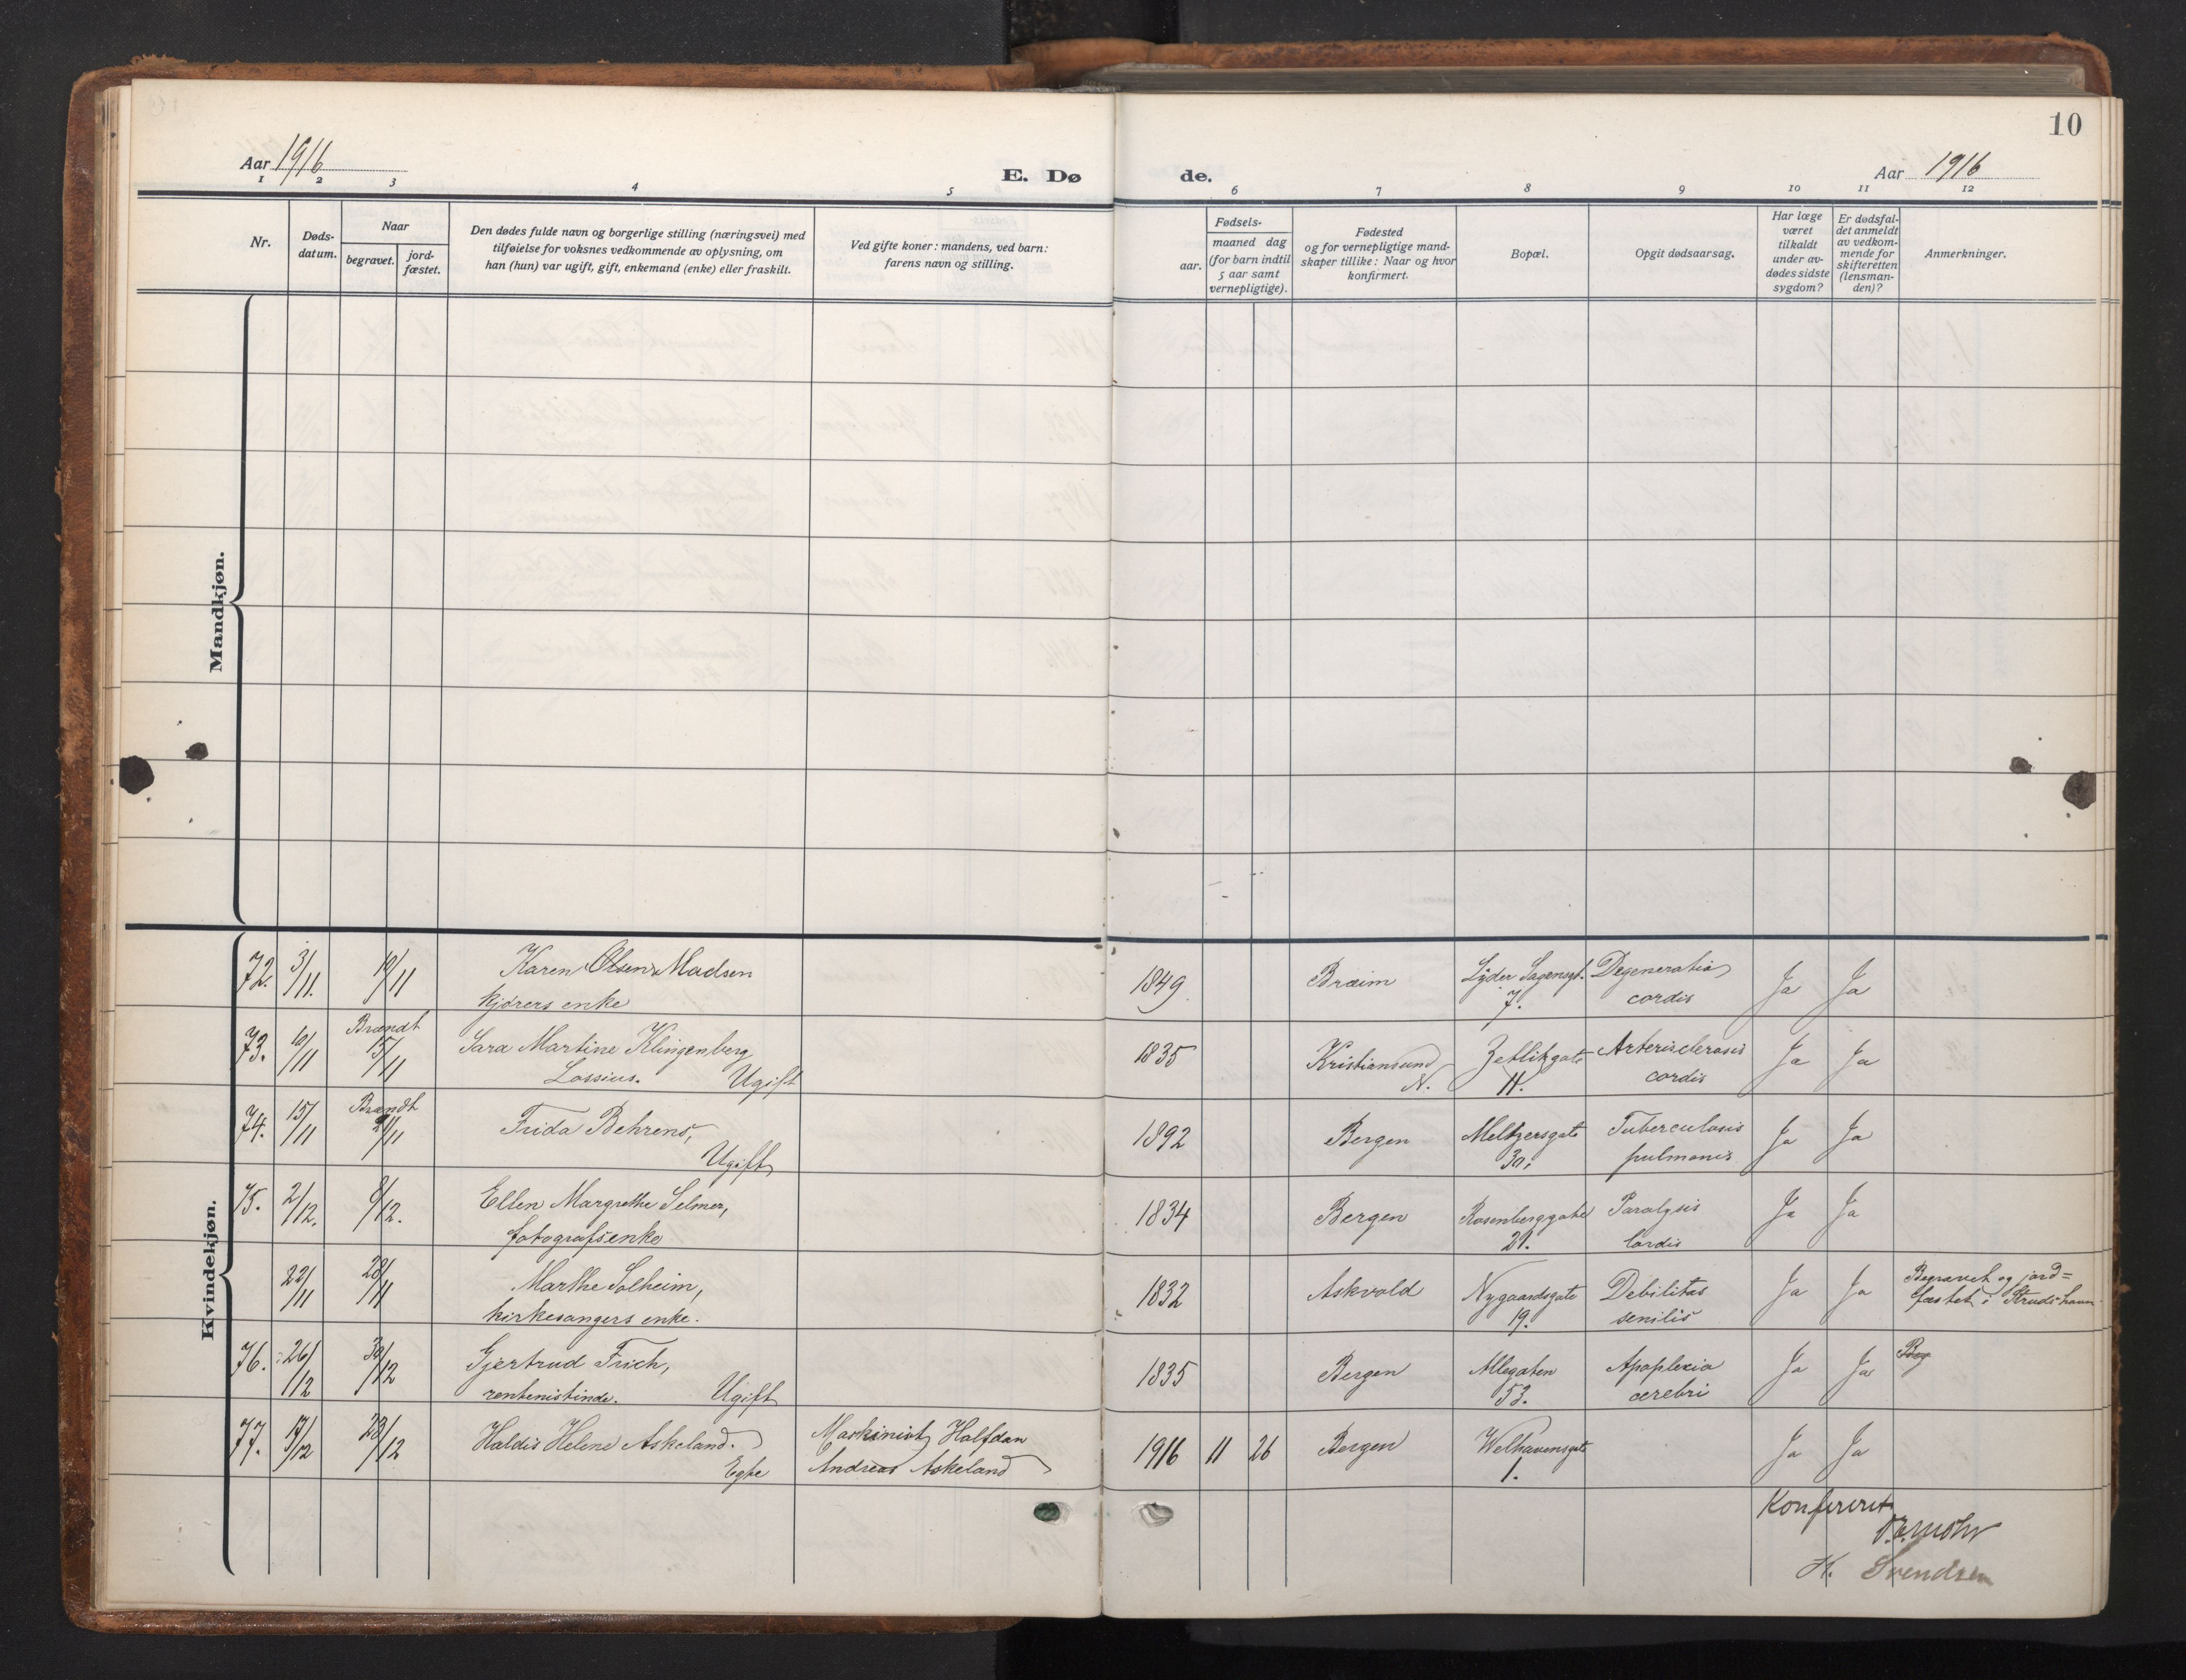 10
Aar 1916
E. Dø
de.
Aar 1916
1 2 3 4 5 6 7 8 9 10 11 12
Nr.
Døds-
datum.
Naar
begravet.
jord-
fæstet.
Den dødes fulde navn og borgerlige stilling (næringsvei) med
tilføielse for voksnes vedkommende av oplysning, om
han (hun) var ugift, gift, enkemand (enke) eller fraskilt.
Ved gifte koner: mandens, ved barn:
farens navn og stilling.
Fødsels-
aar.
maaned dag
(for barn indtil
5 aar samt
vernepligtige).
Fødested
og for vernepligtige mand-
skaper tillike: Naar og hvor
konfirmert.
Bopæl.
Opgit dødsaarsag.
Har læge
været
tilkaldt
under av-
dødes sidste
sygdom?
Er dødsfal-
det anmeldt
av vedkom-
mende for
skifteretten
(lensman-
den)?
Anmerkninger.
Mandkjøn.
Kvindekjøn.
72. 3/11. 10/11 Karen Olsen Madsen 1849 Bræim Lyder Sagensgt. Degeneratio Ja Ja
kjørers enke 7. cordis
73. 10/11 Brændt 15/11 Sara Martine Klingenberg 1835 Kristiansund Zetlitzgate Arterisclerosis Ja Ja
Lossius. Ugift N. 11. cordis
74. 15/11 Brændt 21/11 Frida Behrens, 1892 Bergen Meltzersgate Tuberculosis Ja Ja
Ugift 30. pulmonis
75. 2/12. 8/12. Ellen Margrethe Selmer, 1834 Bergen Rosenberggate Paralysis Ja Ja
fotografsenke 21. Cordis
22/11 28/11 Marthe Solheim, 1832 Askvold Nygaardsgate Debilitas Ja Ja Begravet og jord=
kirkesangers enke. 19. senilis fæstet i Strudshavn
76. 26/12 30/12 Gjertrud Frich, 1835 Bergen Allegaten Apoplexia Ja Ja Beg
rentenistinde. Ugift 53. cerebri
77. 17/12 23/12 Haldis Helene Askeland. Maskinist Halfdan 1916 11 26 Bergen Welhavensgate Ja Ja
Egte Andreas Askeland 1.
Konfereret
H. Svendsen